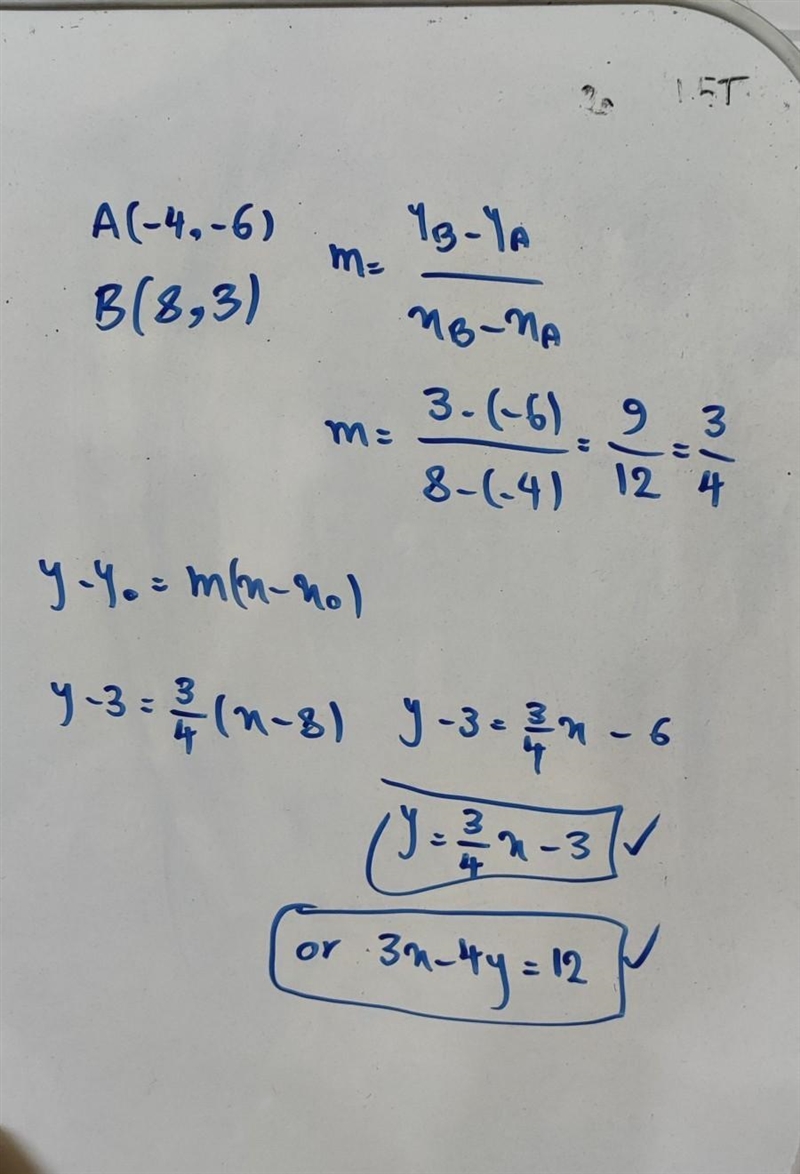 A(-4,-6)
B(8,3)
m= yB-yA / xB-xA
m= 3-(-6) / 8-(-4) = 9/12 = 3/4
y-y₀=m(x-x₀)
y-3=3/4(x-8) y-3=3/4x-6
y=3/4x-3 ✓
or 3x-4y=12 ✓